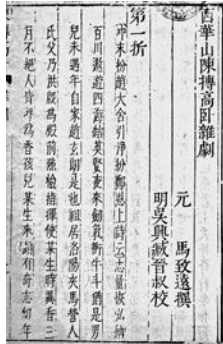 西華山陳摶高臥雜劇
元　馬致遠撰
明吳興臧晉叔校
第一折
冲末扮趙大舍引淨扮鄭恩上詩云志量恢弘納
百川遨遊四海結英賢夜來劍氣衝牛斗猶是男
兒未遇年自家趙玄朗是也祖居洛陽夾馬營人
氏父乃洪殷爲殿前點檢指揮使某生時異香三
月不絕人皆呼爲香孩兒某生來頗有奇志幼年